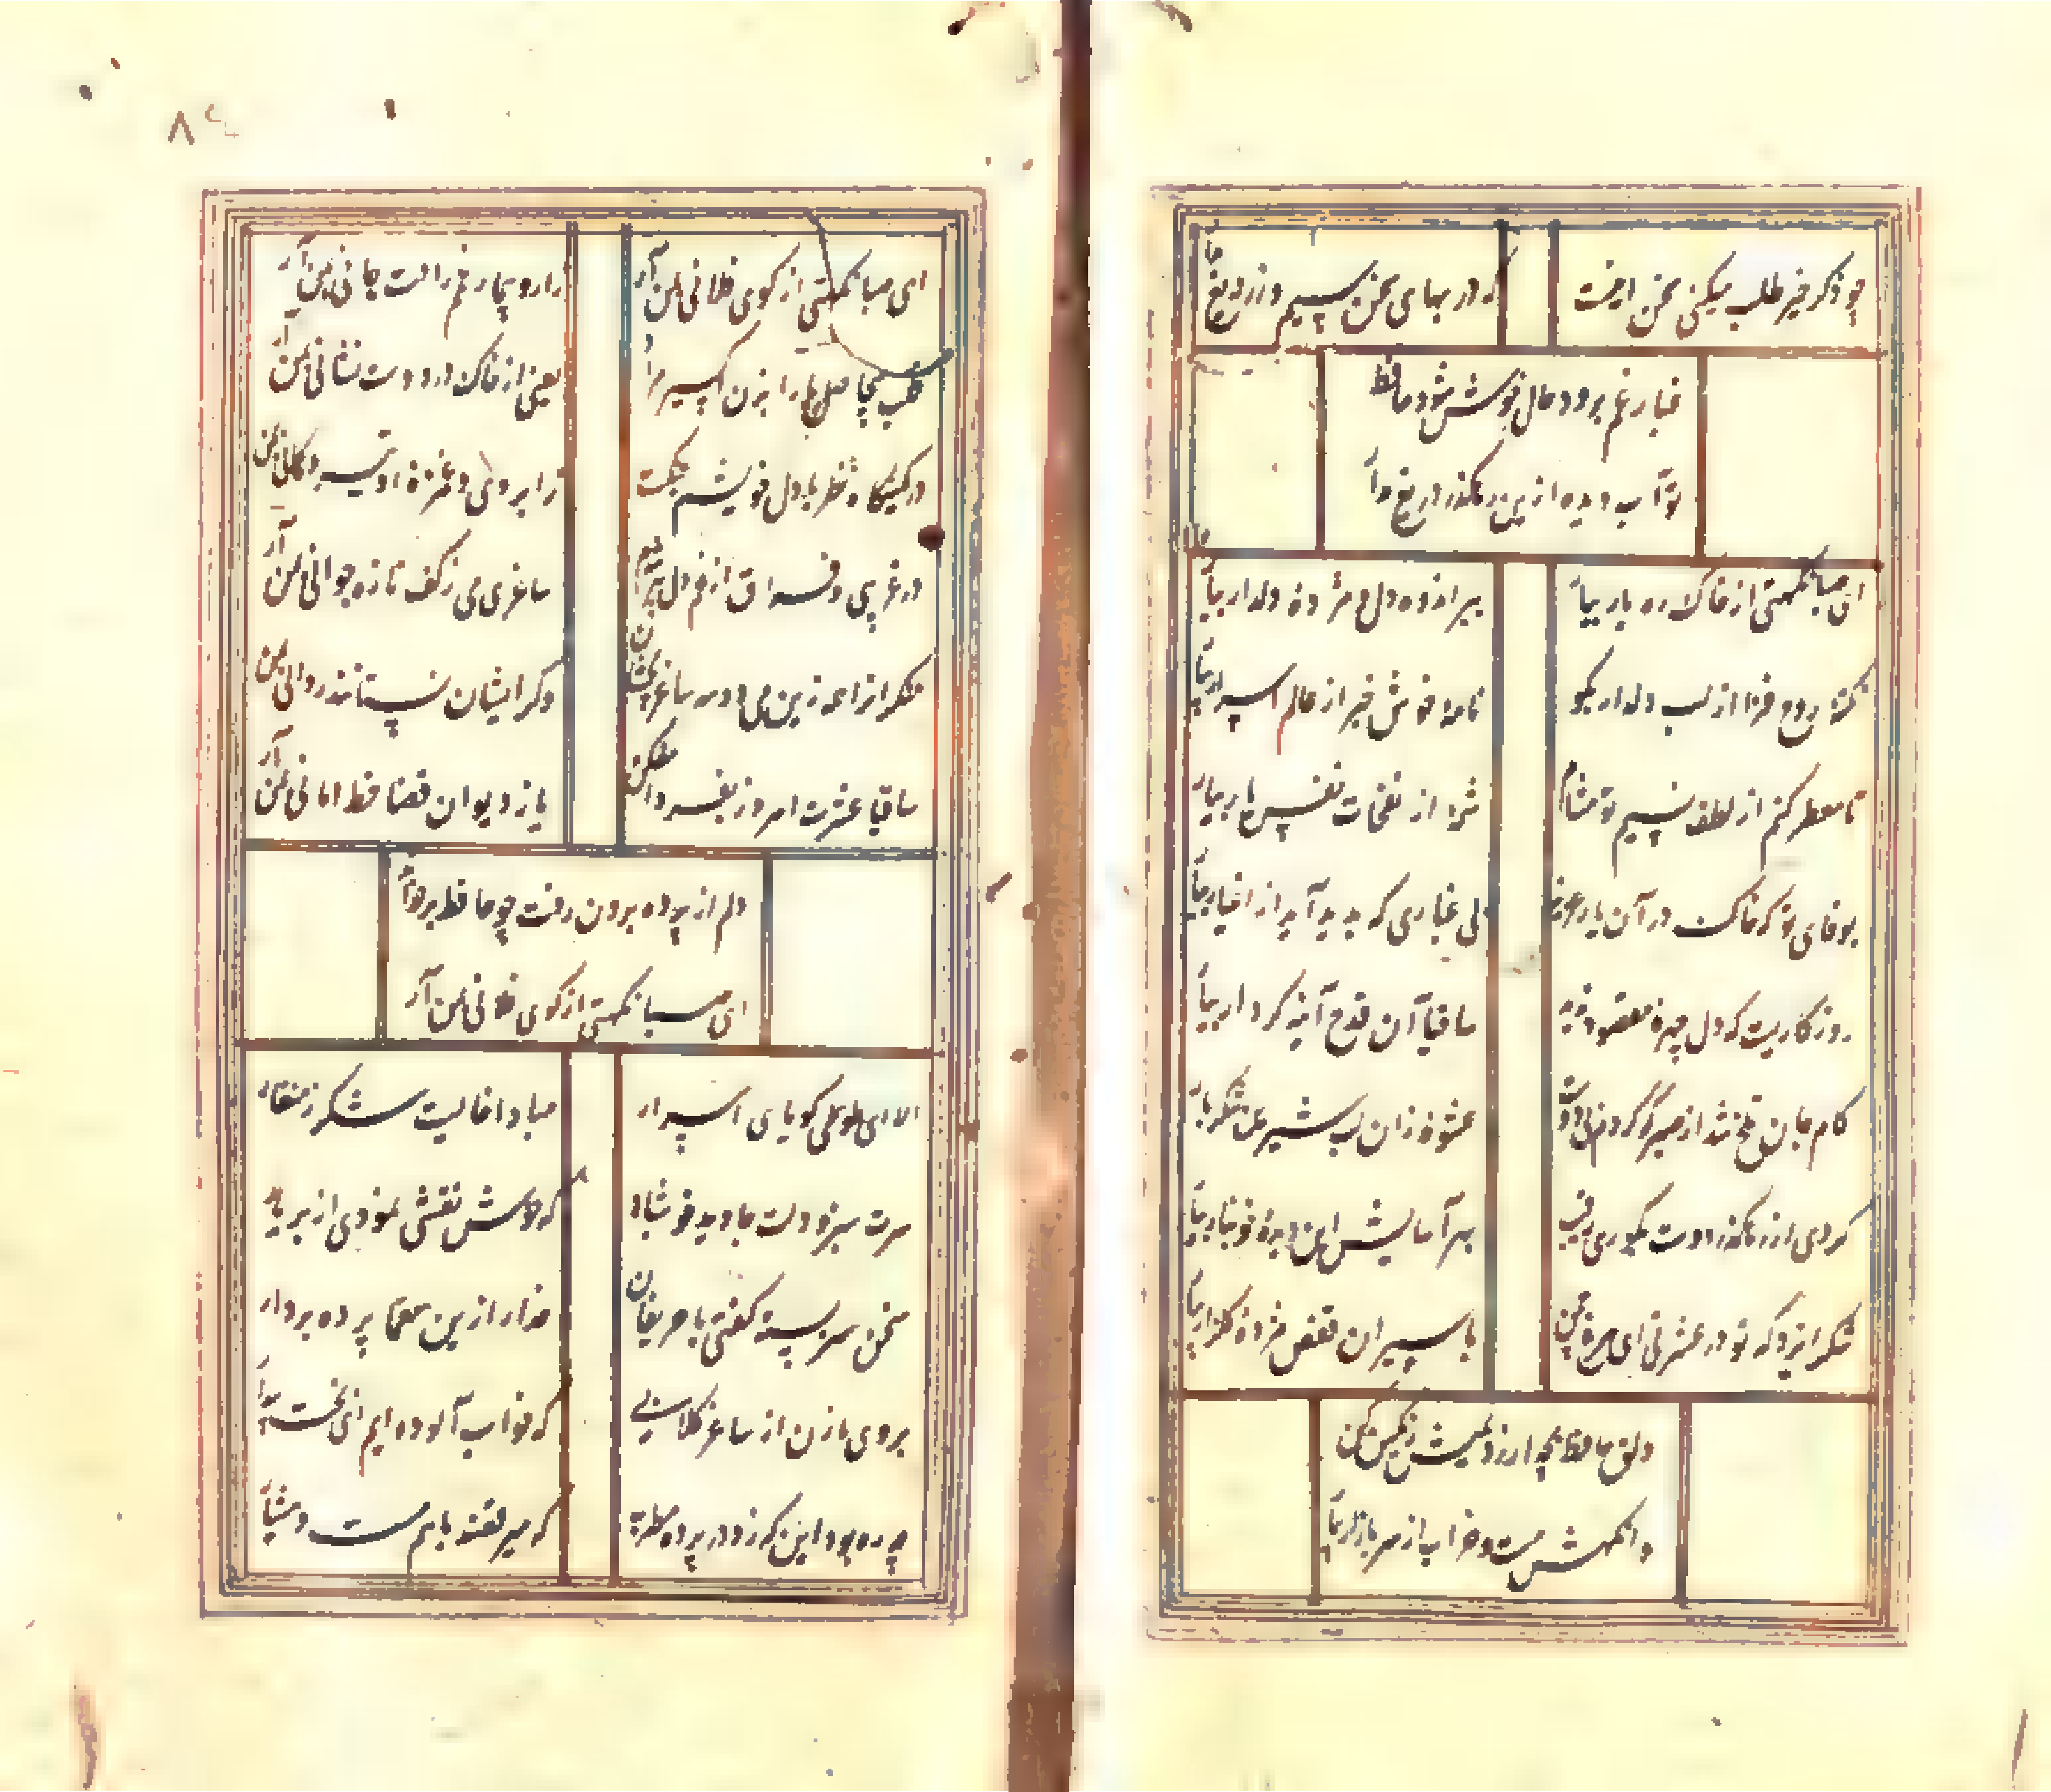 چو ذکر خیر طلب میکنی سخن اینست
که در بهای سخن سیم و زر دریغ مدار
غبار غم برود حال خوش شود حافظ
تو آب دیده ازین رهگذر دریغ مدار
ای صبا نکهتی از خاک ره یار بیار
ببر اندوه دل و مژده دلدار بیار
نکته روح فزا از لب دلدار بکو
نامه خوش خبر از عالم اسرار بیار
تا معطر کنم از لطف نسیم تو مشام
شمه از نفحات نفس یار بیار
بوفای تو که خاک در آن یار عزیز
بی غباری که پدید آید از اغیار بیار
روزگاریست که دل چهره مقصود ندید
ساقیا آن قدح آینه کردار بیار
کام جان تلخ شد از صبر که کردم بی دوست
عشوه زان لب شیرین شکربار بیار
کردی از رهگذر دوست بکوری رقیب
بهر آسایش این دیده خونبار بیار
شکر ایزد که تو در عشرتی ای مرغ چمن
باسیران قفس مژده گلزار بیار
دلق حافظ بچه ارزد بمیش رنگین کن
وانگهش مست و خراب از سر بازار بیار
۸۴
ای صبا نکهتی از کوی فلانی بمن آر
زار و بیمار غمم راحت جانی بمن آر
قلب بیحاصل ما را بزن اکسیر مراد
یعنی از خاک در دوست نشانی بمن آر
در کمینگاه نظر با دل خویشم جنگست
ز ابروی و غمزه او تیر و کمانی بمن آر
در غریبی و فراق از غم دل پیر شدم
ساغری می ز کف تازه جوانی بمن آر
منکرانرا هم ازین می دو سه ساغر بچشان
وگر ایشان نستانند روانی بمن آر
ساقیا عشرت امروز بفردا مفکن
یا ز دیوان قضا خط امانی بمن آر
دلم از پرده برون رفت چو حافظ برمن آر
ای صبا نکهتی از کوی فلانی بمن آر
الا ای طوطی کویای اسرار
مبادا خالیت شکر ز منقار
سرت سبز و دلت جاوید خوش باد
که خوش نقشی نمودی از بر یار
سخن سربسته گفتی با حریفان
خدارا زین معما پرده بردار
بروی ما زن از ساغر گلابی
که خواب آلوده ایم ای بخت بیدار
چه ره بود این که زد در پرده مطرب
که میرقصند با هم مست و هشیار